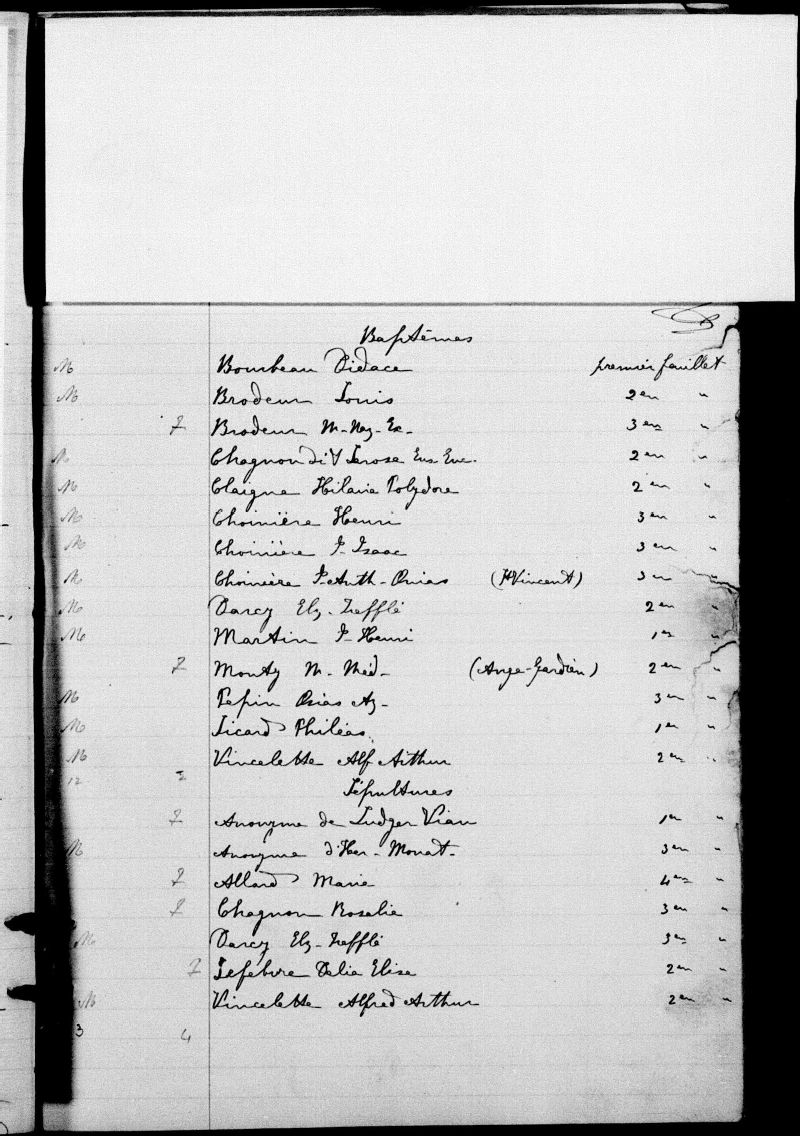 Baptêmes
M Bourbeau Didace premier feuillet
M Brodeur Louis 2en "
F Brodeur M-Naz-Ex- 3en "
M Chagnon dit Larose Eus Eue. 2en "
M Claigne Hilaire Polydore 2en "
M Choinière Henri 3en "
M Choinière J-Isaac 3en "
M Choinière J-Anth-Osias (St Vincent) 3en "
M Darcy Elz-Zefflé 2en "
M Martin J-Henri 1er "
F Monty M-Méd- (Ange-Gardien) 2en "
M Pepin Osias Az- 3en "
M Sicard Philéas 1er "
M Vincelette Alf Arthur 2en "
12 2 Sépultures
F Anonyme de Ludger Viau 1er "
M Anonyme d'Her-Monat- 3en "
F Allard Marie 4en "
F Chagnon Rosalie 3en "
M Darcy Elz-Zefflé 3en "
F Lefebvre Delia Elise 2en "
M Vincelette Alfred Arthur 2en "
3 4